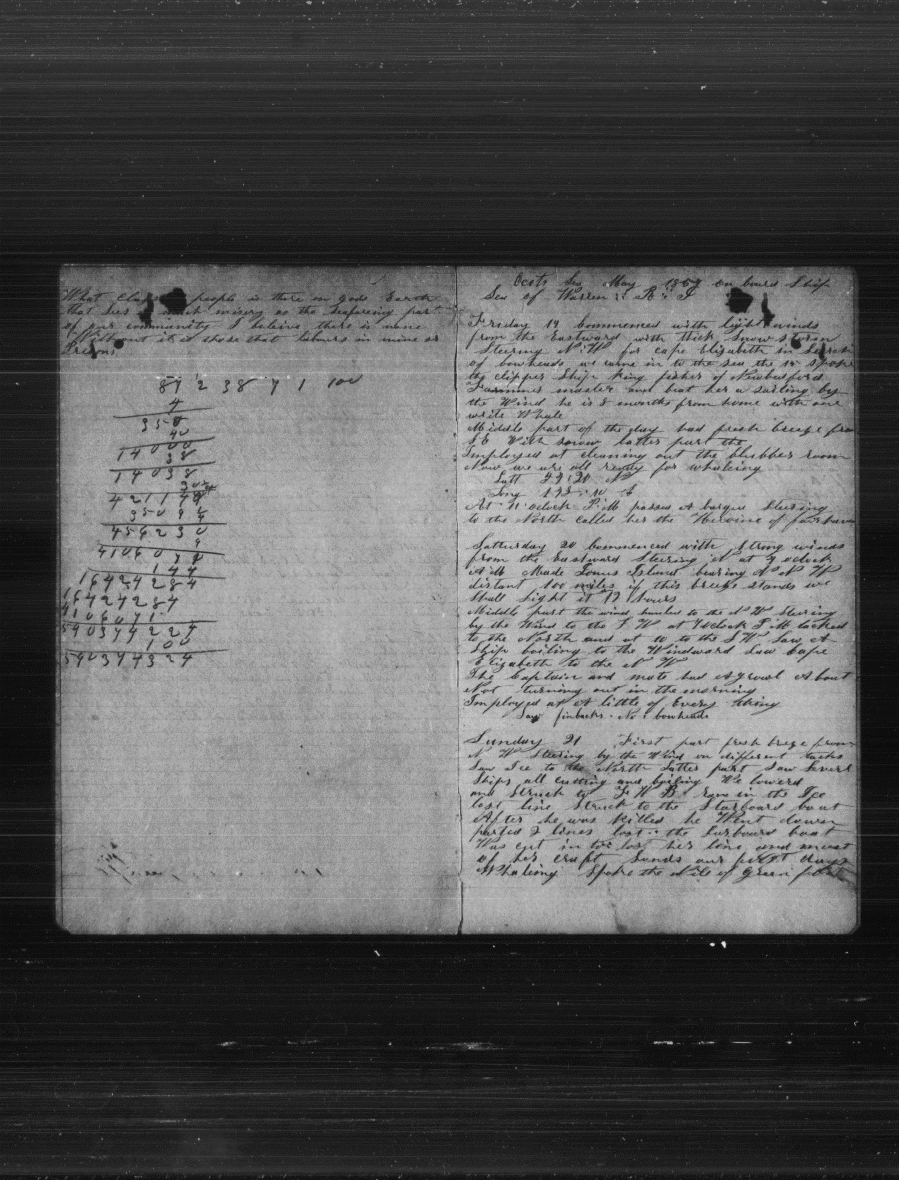 What Class people is there on gods Earth
that sees most misery as the seafaring part
of our community I believe there is none
Without it is those that labours in mine or
Prisons
87 2 38 7 1 100
4
350
40
14000
38
14038
421140
35095
456230
9
410607
144
16424284
16424284
4106071
590374224
100
590374324
Ocots Sea May on board Ship
Sea of Warren R : I
Friday 19 Commenced with light winds
from the Eastward with thick Snow storm
Steering N:W for cape Elizabeth in Serch
of bowheads we came in to the sea the 15 spoke
the clipper Ship King fisher of Newbedford
master and beat her a sailing by
the Wind he is 8 months from home with one
write Whale
Middle part of the day had fresh breeze from
S E With snow latter part the
Imployed at cleaning out the blubber room
Now we are all ready for whaleing
Latt N
Long
At 11 oclock P:M passed A barque Steering
to the North called her the Heroine of fairhaven
Satturday 20 Commenced with strong winds
from the Eastward Steering N at 9 oclock
A:M Made Jonus Island bearing N N W
distant 100 miles if this breeze stands we
Shall Sight it 12 hours
Middle part the wind hauled to the N W Steering
by the Wind to the at 4 oclock P:M tacked
to the North and at 10 to the S W. Saw A
Ship boiling to the Windward Saw Cape
Elizabeth to the N W
The Captain and mate had A growl About
Not turning out in the morning
Imployed at A little of Every thing
Saw finbacks. No bowheads
Sunday 21 First part fresh breze from
N W Steering by the Wind on different tacks
Saw Ice to the North latter part Saw Severl
Ships all cutting and boiling We lowerd
and Struck to B run in the Ice
lost line Struck to the Starboard boat
After he was killed he Went down
parted 2 lines lost the larboard boat
Was cut in too lost her line and most
of her craft Ends our first days
Whaleing Spoke the Nile of Green port